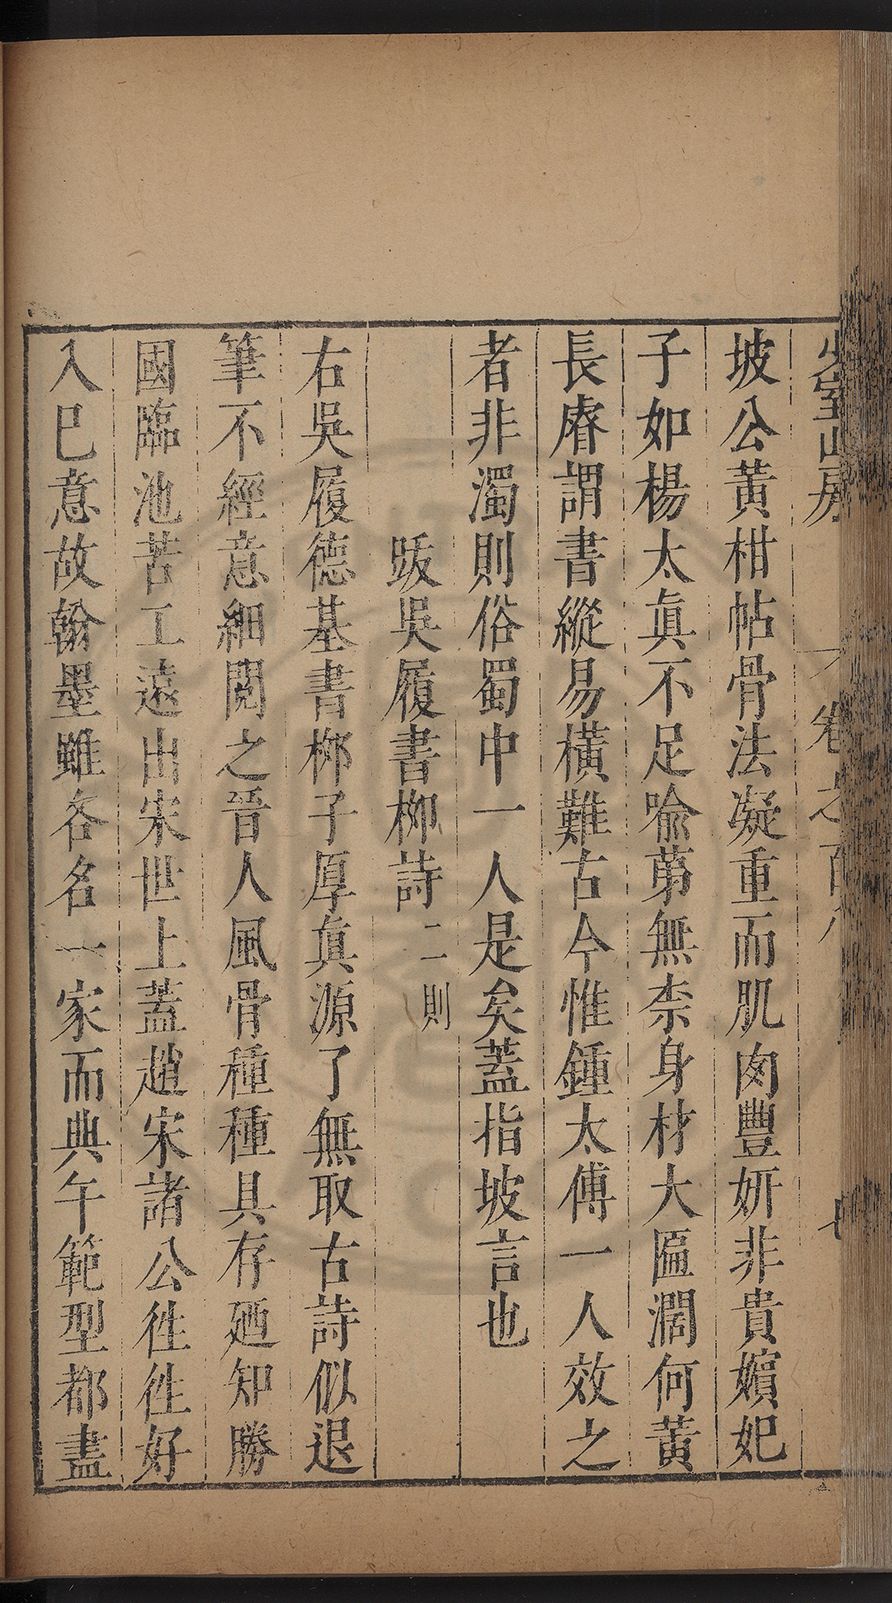 少室山房 卷之百八 七
坡公黃柑帖骨法凝重而肌肉豐妍非貴嬪妃
子如楊太眞不足喻苐無柰身材大匾濶何黃
長睿謂書縱易橫難古今惟鍾太傅一人效之
者非濁則俗蜀中一人是矣蓋指坡言也
跋吳履書栁詩二則
右吳履德基書栁子厚眞源了無取古詩似退
筆不經意細閱之晉人風骨種種具存廼知勝
國臨池苦工遠出宋世上蓋趙宋諸公徃徃好
入巳意故翰墨雖各名一家而典午範型都盡